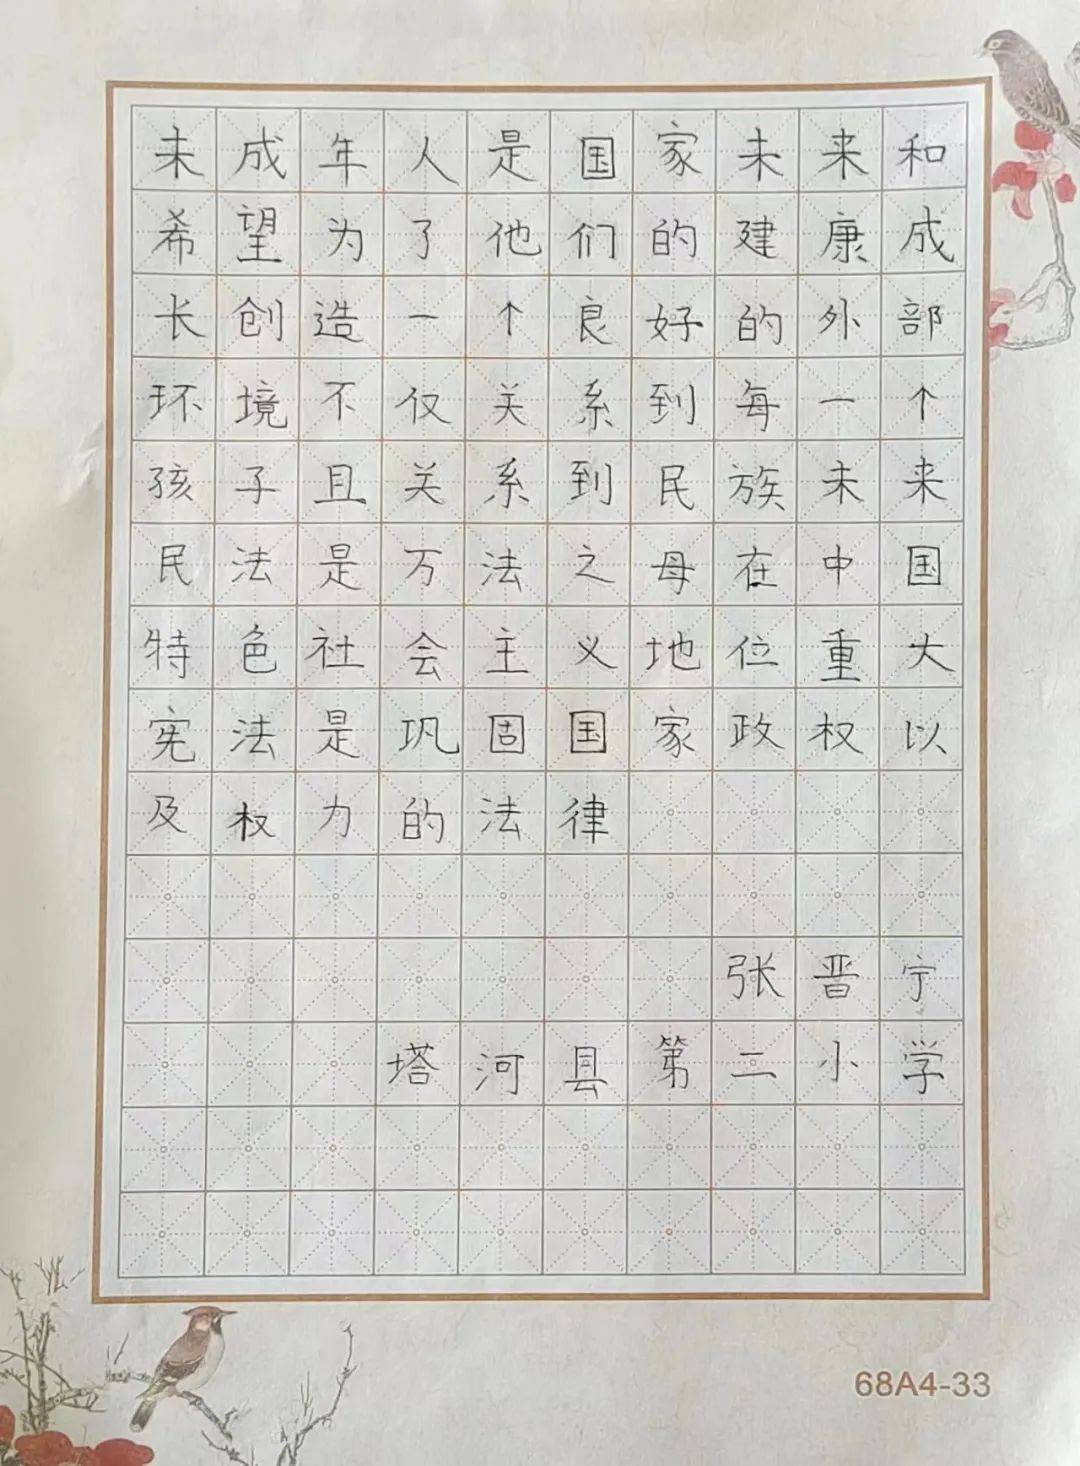 未成年人是国家未来和
希望为了他们的建康成
长创造一个良好的外部
环境不仅关系到每一个
孩子且关系到民族未来
民法是万法之母在中国
特色社会主义地位重大
宪法是巩固国家政权以
及权力的法律
张晋宁
塔河县第二小学
68A4-33